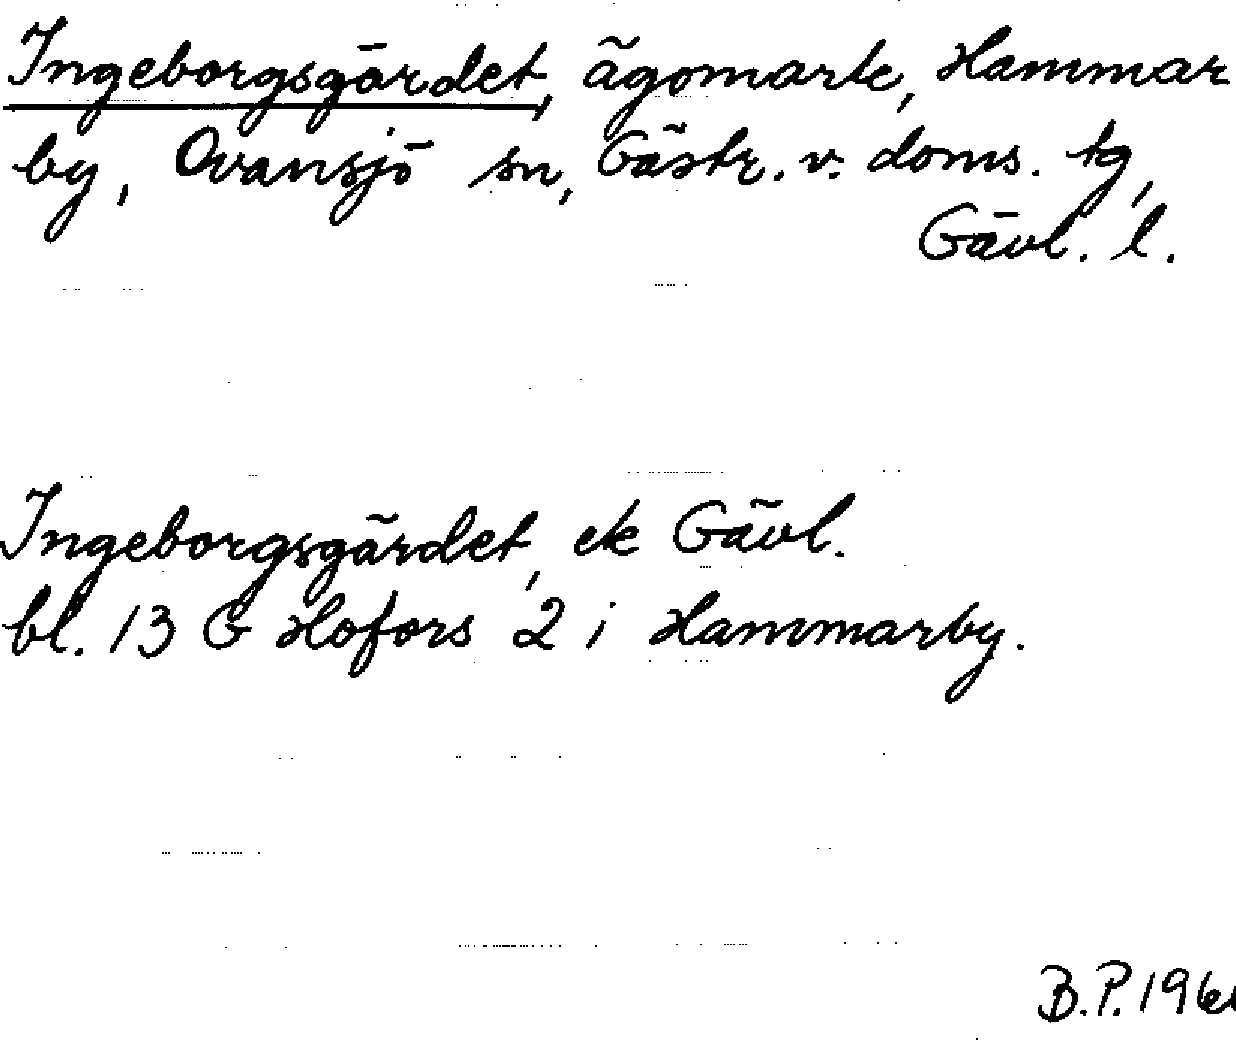 Ingeborgsgärdet, ägomark, Hammar
by, Ovansjö sn, Gästr. v. doms. tg,
Gävl. l.
Ingeborgsgärdet, ek Gävl.
bl. 13 G Hofors 2 i Hammarby.
B.P. 1961